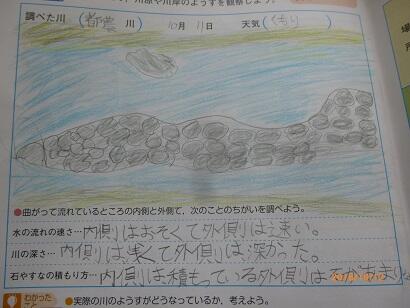 川原や川岸のようすを観察しよう。
調べた川 (都農 川) 10月 11日 天気 (くもり)
●曲がって流れているところの内側と外側で、次のことのちがいを調べよう。
水の流れの速さ…内側はおそくて外側は速い。
川の深さ…内側は浅くて外側は深かった。
石やすなの積もり方…内側は積もっている外側は
わかったこと ●実際の川のようすがどうなっているか、考えよう。